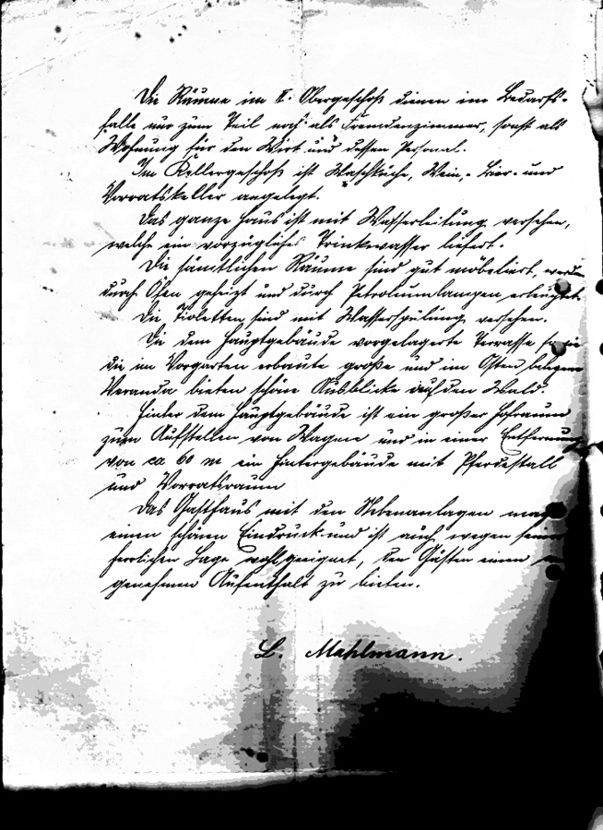 Die Räume im II. Obergeschoß dienen im Bedarfs-
falle nur zum Teil noch als Fremdenzimmer, sonst als
Wohnung für den Wirt und dessen Personal.
Im Kellergeschoß ist Waschküche, Wein-, Bier- und
Vorratskeller angelegt.
Das ganze Haus ist mit Wasserleitung versehen,
welche ein vorzügliches Trinkwasser liefert.
Die sämtlichen Räume sind gut möbeliert, werden
durch Öfen geheizt und durch Petroleumlampen erleuchtet.
Die Toiletten sind mit Wasserspülung versehen.
Die dem Hauptgebäude vorgelagerte Terrasse sowie
die im Vorgarten erbaute große und im Osten belegene
Veranda bieten schöne Ausblicke auf den Wald.
Hinter dem Hauptgebäude ist ein großer Hofraum
zum Aufstellen von Wagen und in einer Entfernung
von ca 60 m ein Hintergebäude mit Pferdestall
und Vorratsraum
Das Gasthaus mit den Nebenanlagen macht
einen schönen Eindruck und ist auch wegen seiner
herrlichen Lage wohl geeignet, den Gästen einen
genehmen Aufenthalt zu bieten.
L. Mahlmann.